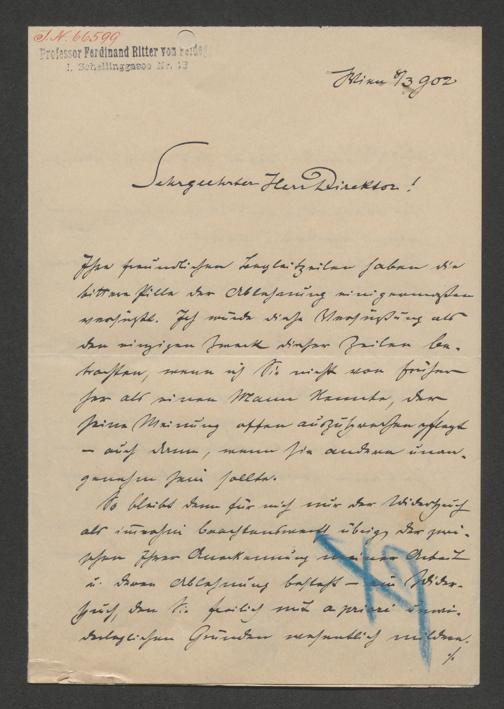 J.N. 66599
Professor Ferdinand Ritter von
I. Schellinggasse Nr. 13
Wien 8/3 902
Sehrgeehrter Herr Direktor!
Ihre freundlichen Begleitzeilen haben die
bittere Pille der Ablehnung einigermaßen
versüßt. Ich würde diese Versüßung als
den einzigen Zweck dieser Zeilen be-
trachten, wenn ich Sie nicht von früher
her als einen Mann kennte, der
seine Meinung offen auszusprechen pflegt
– auch dann, wenn sie andern unan-
genehm sein sollte.
So bleibt denn für mich nur der Widerspruch
als immerhin beachtenswert übrig, der zwi-
schen Ihrer Anerkennung meiner Arbeit
u. deren Ablehnung besteht – ein Wider-
spruch, den Sie freilich mit a priori unwi-
derleglichen Gründen wesentlich mildern.
./.